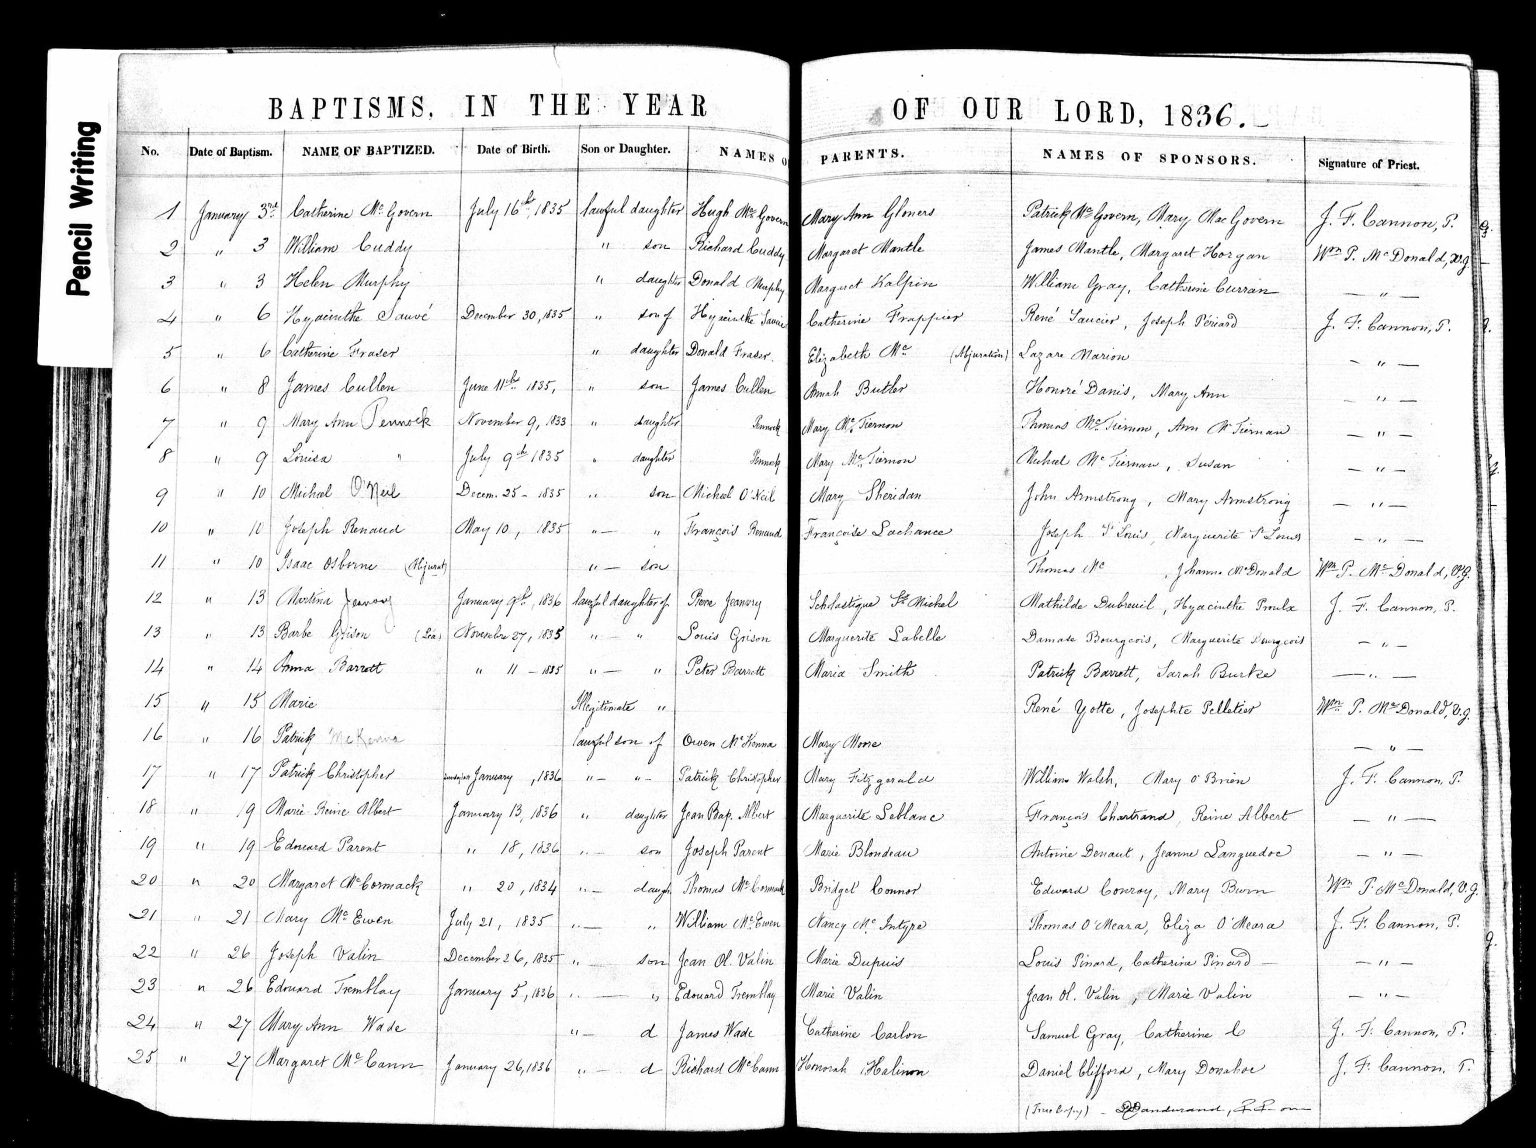 Pencil Writing
BAPTISMS, IN THE YEAR OF OUR LORD, 1836.
No. Date of Baptism. NAME OF BAPTIZED. Date of Birth. Son or Daughter. NAMES O PARENTS. NAMES OF SPONSORS. Signature of Priest.
1 January 3rd Catherine Mc Govern July 16th, 1835 lawful daughter Hugh Mc Govern Mary Ann Glovers Patrick Mc Govern, Mary Mac Govern J. F. Cannon, P.
2 " 3 William Cuddy " son Richard Cuddy Margaret Mantle James Mantle, Margaret Horgan Wm P. McDonald, V.g
3 " 3 Helen Murphy " daughter Donald Murphy Margaret Halpin William Gray, Catherine Curran — " —
4 " 6 Hyacinthe Sauvé December 30, 1835 " son of Hyacinthe Sauvé Catherine Frappier René Saucier, Joseph Périard J. F. Cannon, P.
5 " 6 Catherine Fraser " daughter Donald Fraser. Elizabeth Mc (Abjuration) Lazare Marion — " —
6 " 8 James Cullen June 11th 1835, " son James Cullen Annah Butler Honoré Danis, Mary Ann — " —
7 " 9 Mary Ann Pennock November 9, 1833 " daughter Pennock Mary Mc Tiernon Thomas Mc Tiernon, Ann Mc Tiernan — " —
8 " 9 Louisa " July 9th 1835 " daughter Pennock Mary Mc Tiernon Michael Mc Tiernan, Susan — " —
9 " 10 Michael O'Neil Decem. 25 - 1835 " son Michael O'Neil Mary Sheridan John Armstrong, Mary Armstrong — " —
10 " 10 Joseph Renaud May 10, 1835 " — " François Renaud Françoise Lachance Joseph St Louis, Marguerite St Louis — " —
11 " 10 Isaac Osborne (Abjurat) " — son Thomas Mc , Johanna McDonald Wm P. McDonald, V.G.
12 " 13 Martina Jeanvry January 9th, 1836 lawful daughter of Pierre Jeanvry Scholastique St Michel Mathilde Dubreuil, Hyacinthe Proulx J. F. Cannon, P.
13 " 13 Barbe Grison (Léa) Novembre 27, 1835 " — " Louis Grison Marguerite Labelle Damase Bourgeois, Marguerite Bourgeois — " —
14 " 14 Anna Barrott " 11 - 1835 " — " Peter Barrott Maria Smith Patrick Barrott, Sarah Burke — " —
15 " 15 Marie Illegitimate " René Yotte, Josephte Pelletier Wm P. McDonald, V.g.
16 " 16 Patrick McKenna lawful son of Owen McKenna Mary Moore — " —
17 " 17 Patrick Christopher January, 1836 " — " — Patrick Christopher Mary Fitzgerald William Walsh, Mary O'Brien J. F. Cannon, P.
18 " 19 Marie Reine Albert January 13, 1836 " daughter Jean Bap. Albert Marguerite Leblanc François Chartrand, Reine Albert — " —
19 " 19 Edouard Parent " 18, 1836 " — son Joseph Parent Marie Blondeau Antoine Denaut, Jeanne Languedoc — " —
20 " 20 Margaret McCormack " 20, 1834 " — daugh Thomas McCormack Bridget Connor Edward Conroy, Mary Wm P. McDonald, V.g.
21 " 21 Mary Mc Ewen July 21, 1835 " — " William McEwen Nancy Mc Intyre Thomas O'Meara, Eliza O'Meara J. F. Cannon, P.
22 " 26 Joseph Valin December 26, 1835 " — son Jean Ol. Valin Marie Dupuis Louis Pinard, Catherine Pinard — — " —
23 " 26 Edouard Tremblay January 5, 1836 " — " Edouard Tremblay Marie Valin Jean Ol. Valin, Marie Valin — " —
24 " 27 Mary Ann Wade " — d James Wade Catherine Carlon Samuel Gray, Catherine C J. F. Cannon, P.
25 " 27 Margaret McCann January 26, 1836 " — d Richard McCann Honorah Halinon Daniel Clifford, Mary Donahoe J. F. Cannon, P.
(True Copy) — Dandurand,